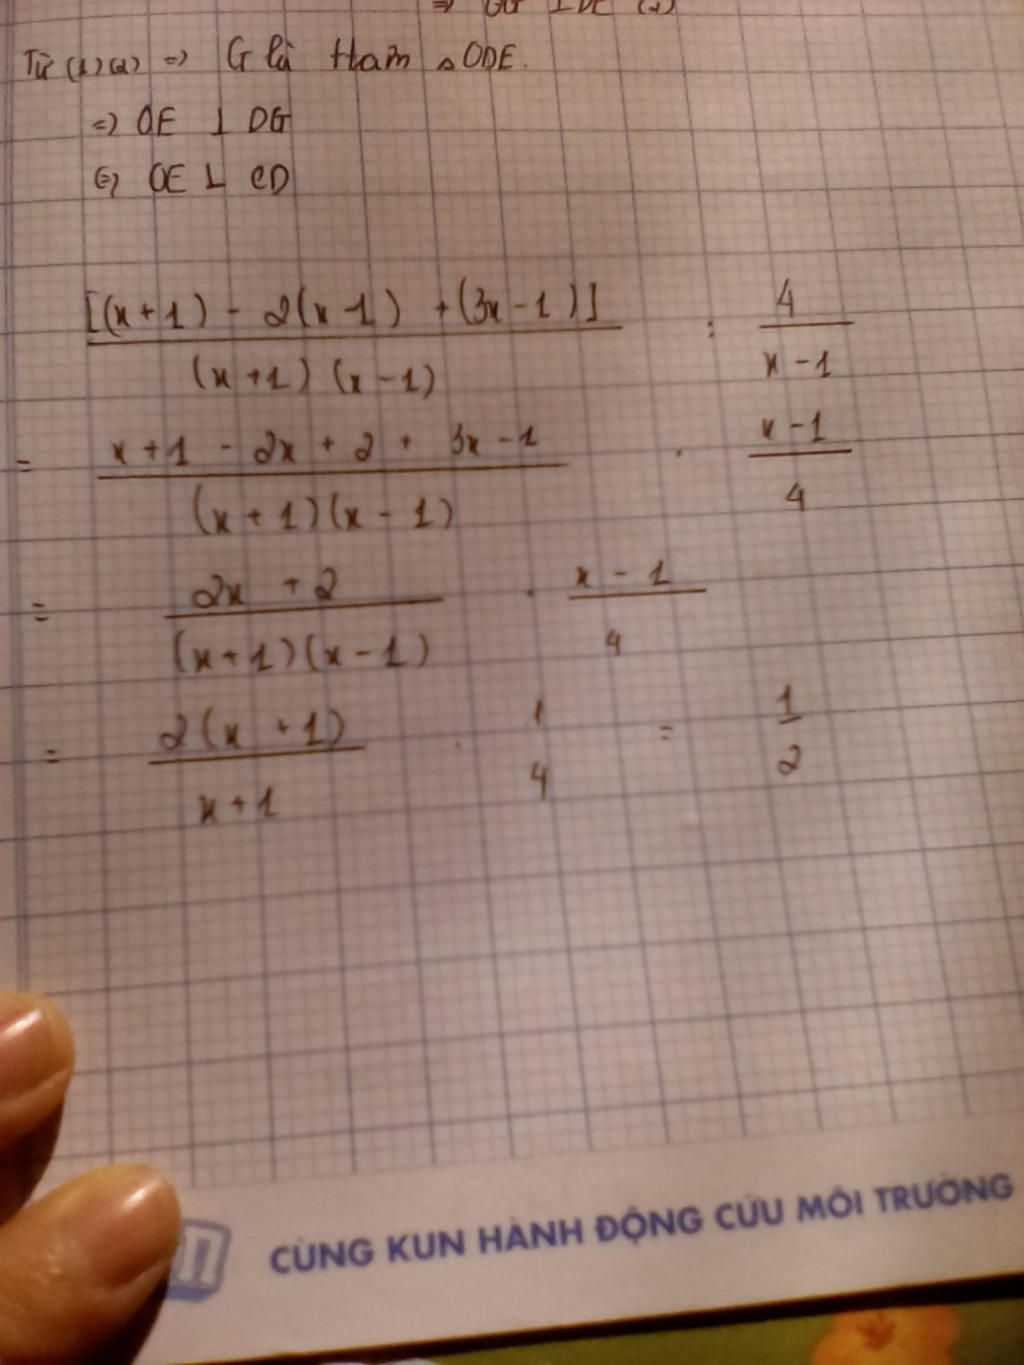 ⇒ OG ⊥ DE (2)
Từ (1) (2) ⇒ G là △ ODE.
⇒ OE ⊥ DG
⇔ OE ⊥ CD
[(x+1) - 2(x-1) + (3x-1)] : 4
(x+1) (x-1) x-1
= x+1 - 2x + 2 + 3x -1 . x-1
(x+1)(x-1) 4
= 2x + 2 . x-1
(x+1)(x-1) 4
= 2(x +1) . 1 = 1
x+1 4 2
CÙNG KUN HÀNH ĐỘNG CỨU MÔI TRƯỜNG